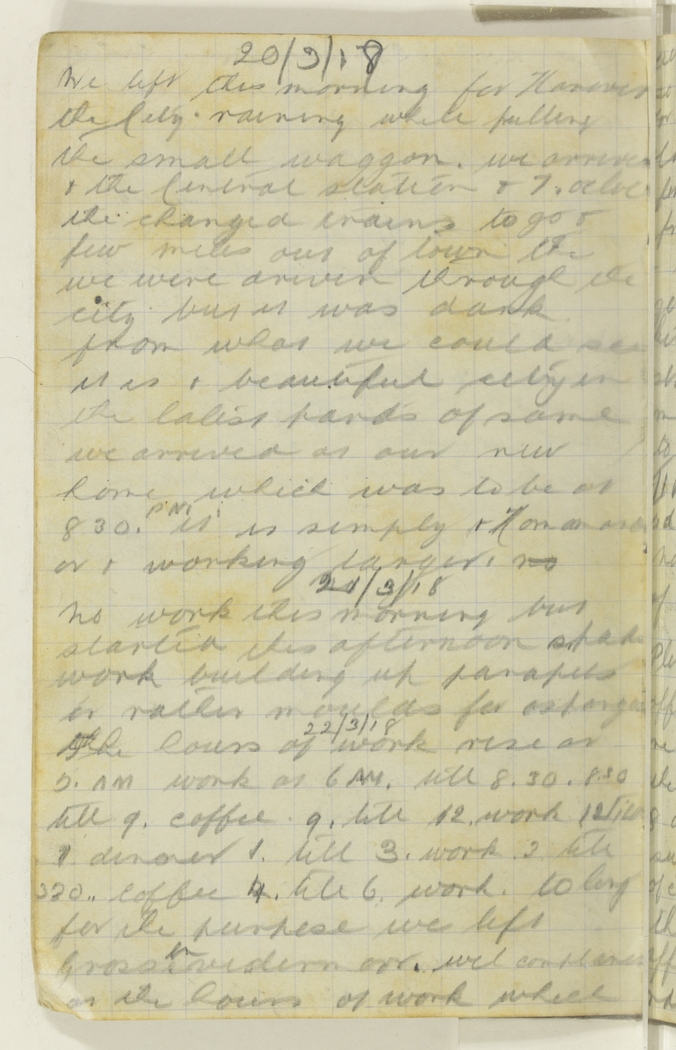 20/3/18
We left this morning for Hanover
the City. raining while pulling
the small waggon. we arrived
& the Central station & 7. oclo
the changed trains to go &
few miles out of town the
we were driven through the
city but it was dark
from what we could see
it is & beautiful city in
the latest parts of some
we arrived at our new
home which was to be at
8 30. P M. it is simply &
or & working larger. no
21/3/18
No work this morning but
started this afternoon spade
work building up parapets
or rather moulds for asparagus
22/3/18
The hours of work rise at
5. AM work at 6 AM. till 8.30. 8.30
till 9. coffee. 9. till 12. work 12 till
1 dinner 1. till 3. work. 3 till
330.. coffee 4. till 6. work. to long
for the purpose we left
we complained
as the hours of work which